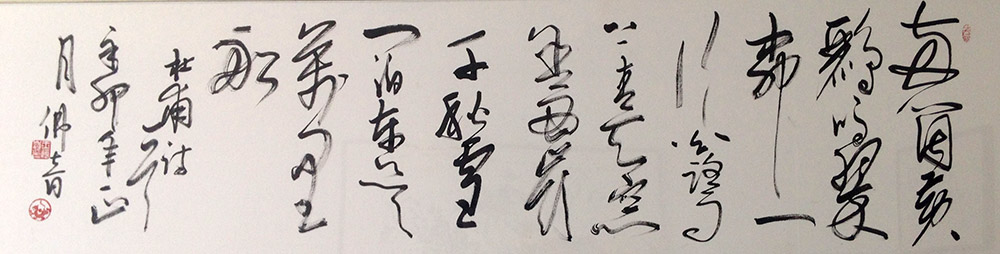 兩個黃
鸝鳴翠
柳一
行白鷺
上青天窗
含西嶺
千秋雪
門泊東吳
萬里
船
杜甫詩
辛卯年正
月